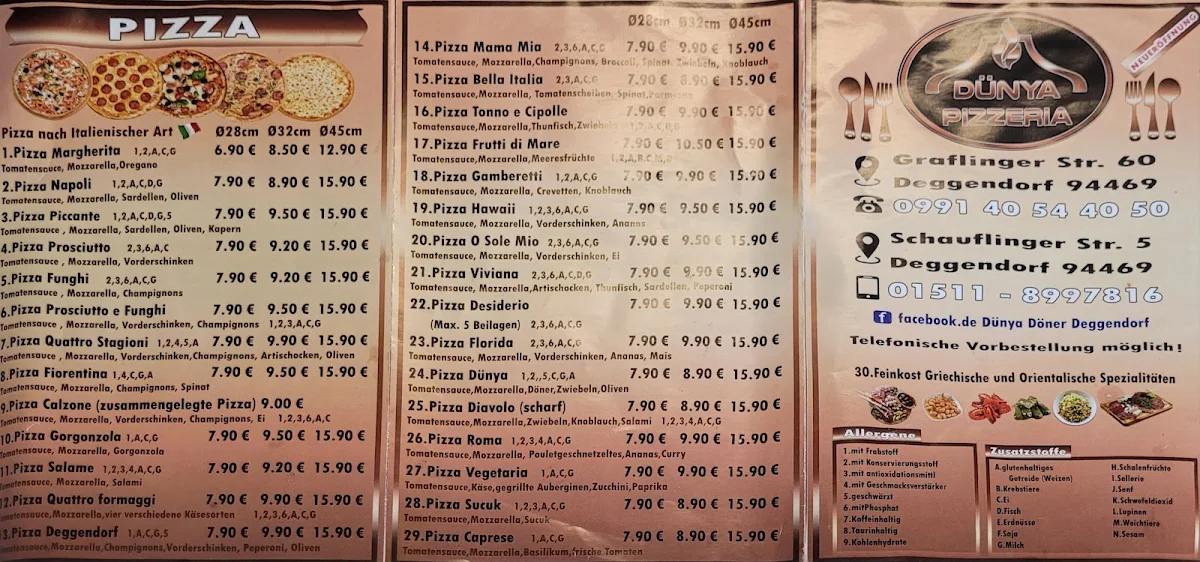 PIZZA
Pizza nach Italienischer Art Ø28cm Ø32cm Ø45cm
1.Pizza Margherita 1,2,A,C,G 6.90 € 8.50 € 12.90 €
Tomatensauce, Mozzarella,Oregano
2.Pizza Napoli 1,2,A,C,D,G 7.90 € 8.90 € 15.90 €
Tomatensauce, Mozzarella, Sardellen, Oliven
3.Pizza Piccante 1,2,A,C,D,G,5 7.90 € 9.50 € 15.90 €
Tomatensauce , Mozzarella, Sardellen, Oliven, Kapern
4.Pizza Prosciutto 2,3,6,A,C 7.90 € 9.20 € 15.90 €
Tomatensauce , Mozzarella, Vorderschinken
5.Pizza Funghi 2,3,6,A,C,G 7.90 € 9.20 € 15.90 €
Tomatensauce , Mozzarella, Champignons
6.Pizza Prosciutto e Funghi 7.90 € 9.50 € 15.90 €
Tomatensauce , Mozzarella, Vorderschinken, Champignons 1,2,3,A,C,G
7.Pizza Quattro Stagioni 1,2,4,5,A 7.90 € 9.90 € 15.90 €
Tomatensauce , Mozzarella, Vorderschinken,Champignons, Artischocken, Oliven
8.Pizza Fiorentina 1,4,C,G,A 7.90 € 9.50 € 15.90 €
Tomatensauce, Mozzarella, Champignons, Spinat
9.Pizza Calzone (zusammengelegte Pizza) 9.00 €
Tomatensauce, Mozzarella, Vorderschinken, Champignons, Ei 1,2,3,6,A,C
10.Pizza Gorgonzola 1,A,C,G 7.90 € 9.50 € 15.90 €
Tomatensauce, Mozzarella, Gorgonzola
11.Pizza Salame 1,2,3,4,A,C,G 7.90 € 9.20 € 15.90 €
Tomatensauce, Mozzarella, Salami
12.Pizza Quattro formaggi 7.90 € 9.90 € 15.90 €
Tomatensauce, Mozzarella,vier verschiedene Käsesorten 1,2,3,6,A,C,G
13.Pizza Deggendorf 1,A,C,G,5 7.90 € 9.90 € 15.90 €
Tomatensauce,Mozzarella,Champignons,Vorderschinken, Peperoni, Oliven
Ø28cm Ø32cm Ø45cm
14.Pizza Mama Mia 2,3,6,A,C,G 7.90 € 9.90 € 15.90 €
Tomatensauce, Mozzarella,Champignons, Broccoli, Spinat, Zwiebeln, Knoblauch
15.Pizza Bella Italia 2,3,A,C,G 7.90 € 8.90 € 15.90 €
Tomatensauce,Mozzarella, Tomatenscheiben, Spinat,Parmesan
16.Pizza Tonno e Cipolle 7.90 € 9.90 € 15.90 €
Tomatensauce,Mozzarella,Thunfisch,Zwiebeln 1,2,A,C,D,G
17.Pizza Frutti di Mare 7.90 € 10.50 € 15.90 €
Tomatensauce,Mozzarella,Meeresfrüchte 1,2,A,B,C,M,D
18.Pizza Gamberetti 1,2,A,C,G 7.90 € 9.90 € 15.90 €
Tomatensauce, Mozzarella, Crevetten, Knoblauch
19.Pizza Hawaii 1,2,3,6,A,C,G 7.90 € 9.50 € 15.90 €
Tomatensauce, Mozzarella, Vorderschinken, Ananas
20.Pizza O Sole Mio 2,3,6,A,C,G 7.90 € 9.50 € 15.90 €
Tomatensauce, Mozzarella, Vorderschinken, Ei
21.Pizza Viviana 2,3,6,A,C,D,G 7.90 € 9.90 € 15.90 €
Tomatensauce, Mozzarella,Artischocken, Thunfisch, Sardellen, Peperoni
22.Pizza Desiderio 7.90 € 9.90 € 15.90 €
(Max. 5 Beilagen) 2,3,6,A,C,G
23.Pizza Florida 2,3,6,A,C,G 7.90 € 9.90 € 15.90 €
Tomatensauce, Mozzarella, Vorderschinken, Ananas, Mais
24.Pizza Dünya 1,2,,5,C,G,A 7.90 € 8.90 € 15.90 €
Tomatensauce,Mozzarella,Döner,Zwiebeln,Oliven
25.Pizza Diavolo (scharf) 7.90 € 8.90 € 15.90 €
Tomatensauce,Mozzarella,Zwiebeln,Knoblauch,Salami 1,2,3,4,A,C,G
26.Pizza Roma 1,2,3,4,A,C,G 7.90 € 9.90 € 15.90 €
Tomatensauce,Mozzarella, Pouletgeschnetzeltes,Ananas,Curry
27.Pizza Vegetaria 1,A,C,G 7.90 € 9.90 € 15.90 €
Tomatensauce,Käse,gegrillte Auberginen,Zucchini,Paprika
28.Pizza Sucuk 1,2,3,A,C,G 7.90 € 8.90 € 15.90 €
Tomatensauce,Mozzarella,Sucuk
29.Pizza Caprese 1,A,C,G 7.90 € 8.90 € 15.90 €
Tomatensauce,Mozzarella,Basilikum,frische Tomaten
NEUERÖFFNUNG
DÜNYA
PIZZERIA
Graflinger Str. 60
Deggendorf 94469
0991 40 54 40 50
Schauflinger Str. 5
Deggendorf 94469
01511 - 8997816
facebook.de Dünya Döner Deggendorf
Telefonische Vorbestellung möglich!
30.Feinkost Griechische und Orientalische Spezialitäten
Allergene
1.mit Frabstoff
2.mit Konservierungsstoff
3.mit antioxidationsmittl
4.mit Geschmacksverstärker
5.geschwärzt
6.mitPhosphat
7.Koffeinhaltig
8.Taurinhaltig
9.Kohlenhydrate
Zusatzstoffe
A.glutenhaltiges
Getreide (Weizen)
B.Krebstiere
C.Ei
D.Fisch
E.Erdnüsse
F.Soja
G.Milch
H.Schalenfrüchte
I.Sellerie
J.Senf
K.Schwefeldioxid
L.Lupinen
M.Weichtiere
N.Sesam